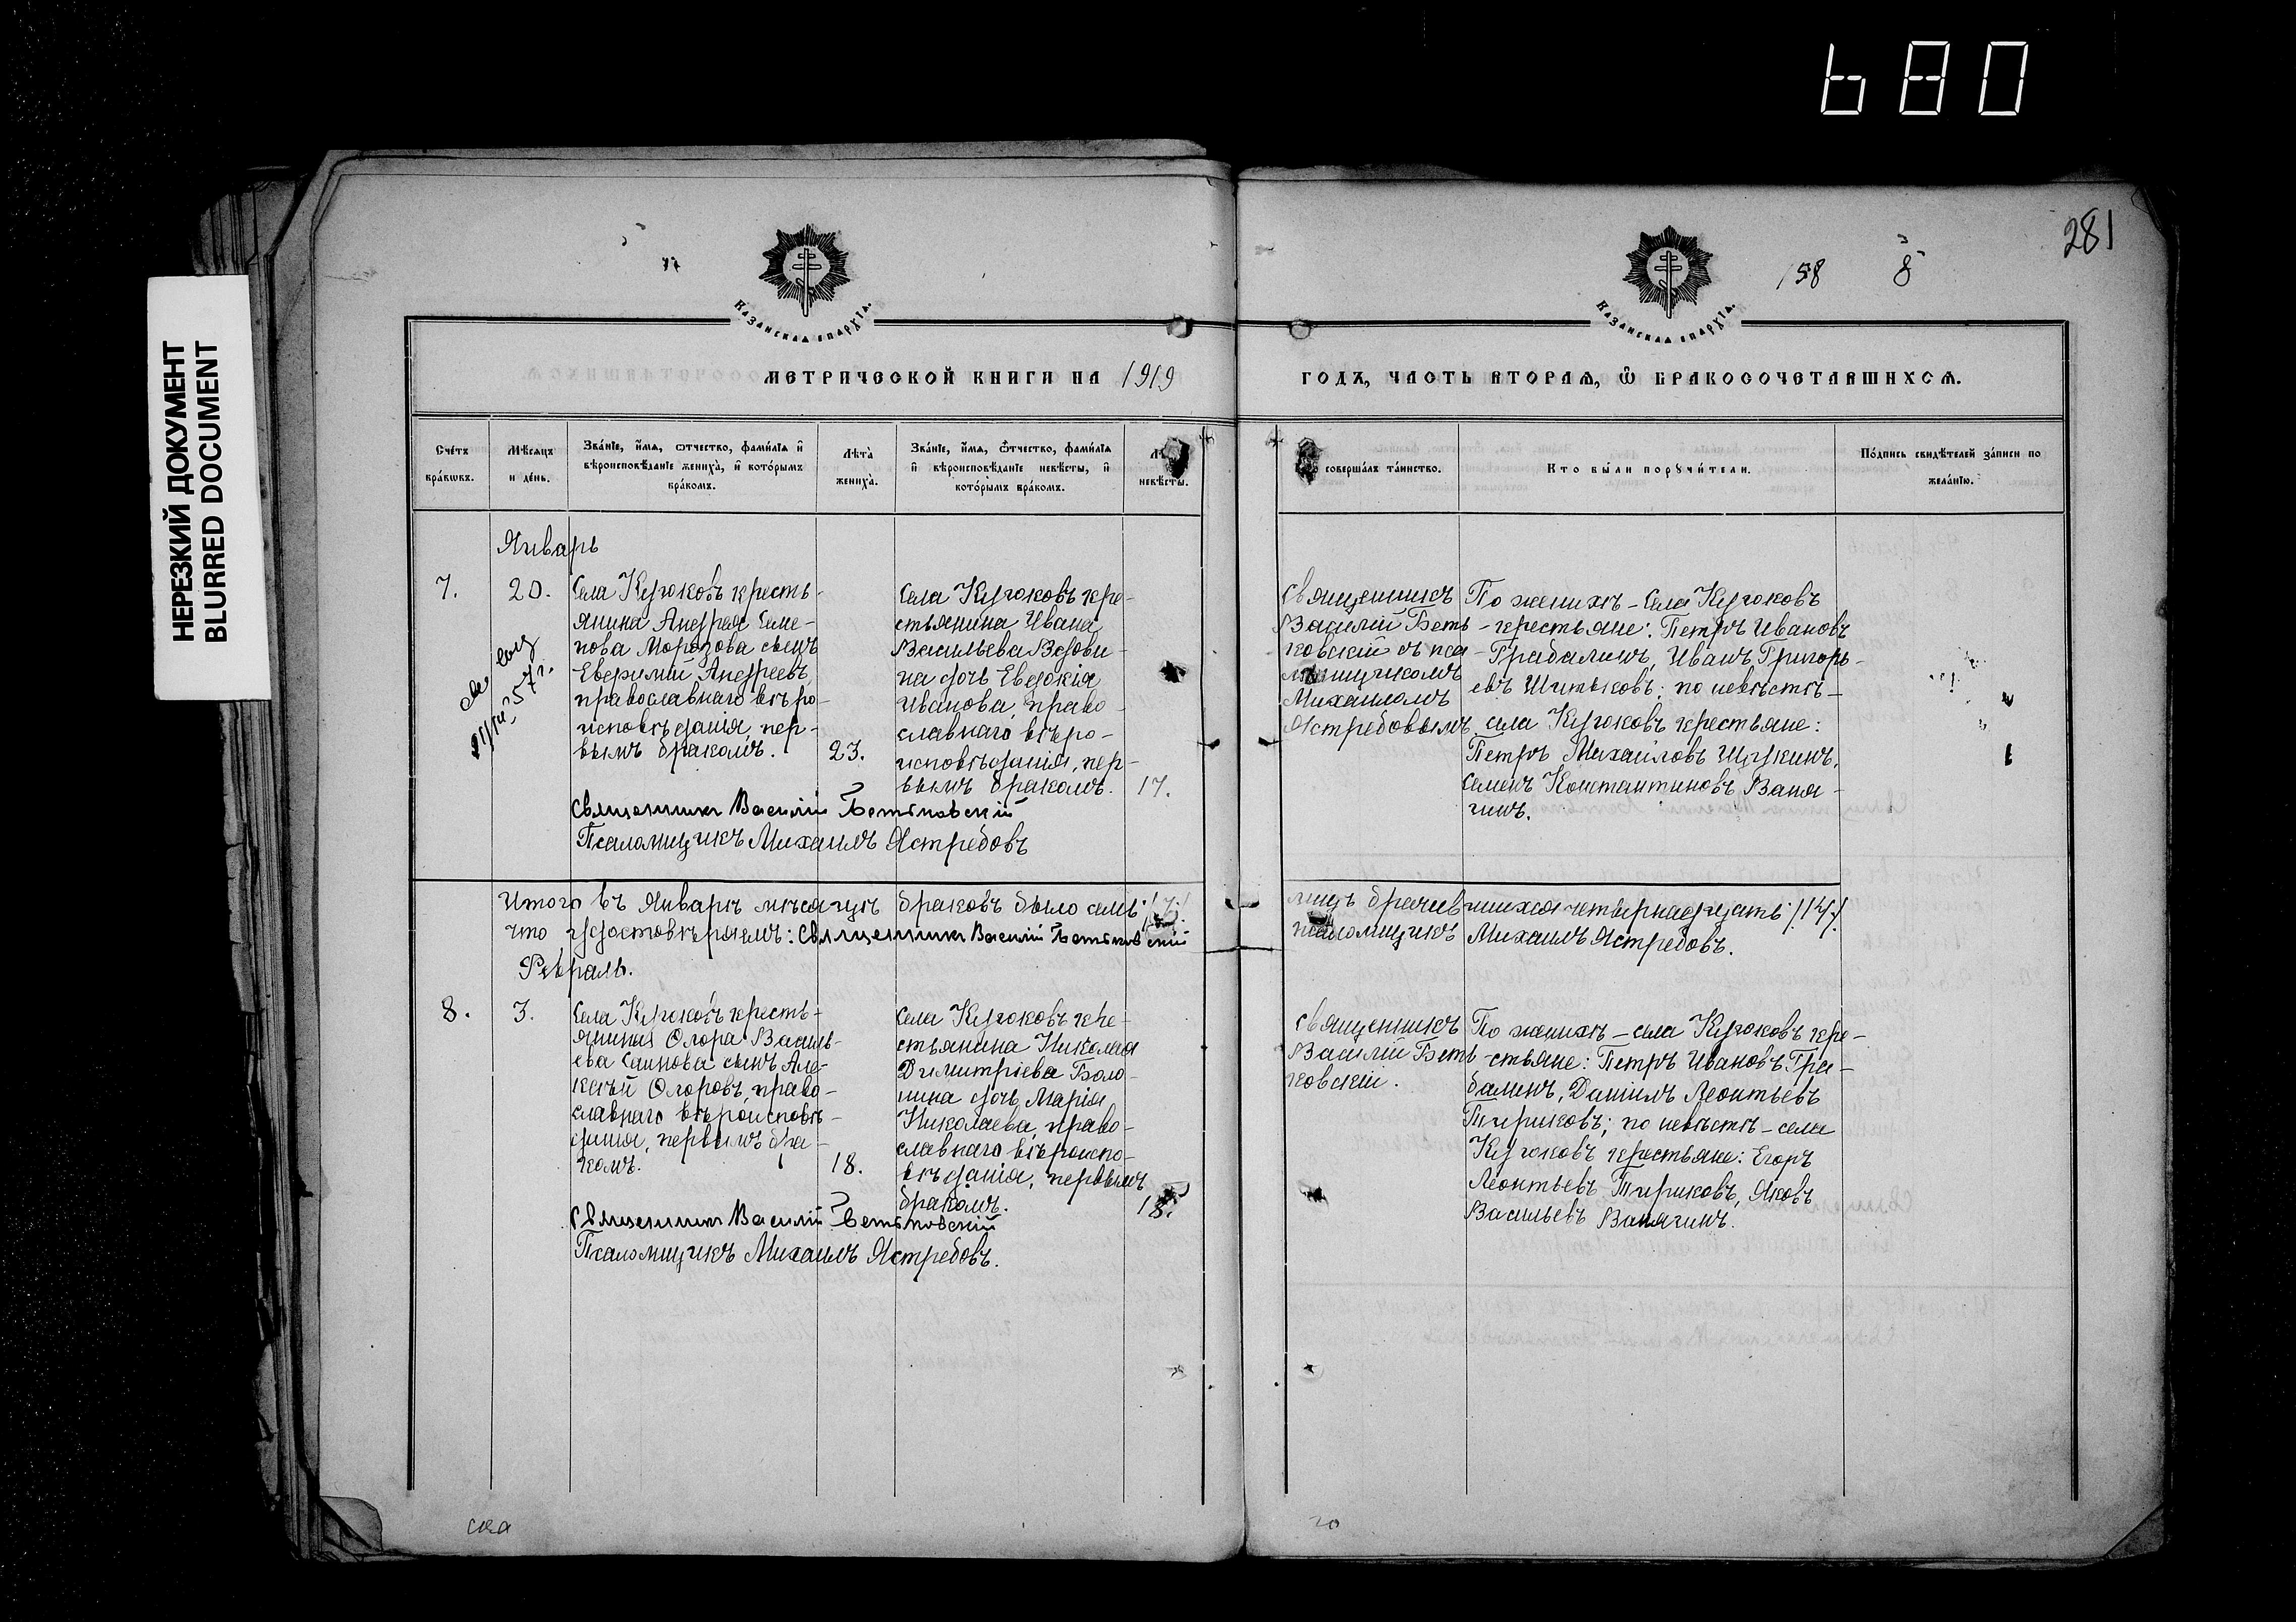 680
НЕРЕЗКИЙ ДОКУМЕНТ
BLURRED DOCUMENT
281
158 8
Казанская епархїа.
Казанская епархїа.
МЕТРИЧЕСКОЙ КНИГИ НА 1919
ГОДЪ, ЧАСТЬ ВТОРАѦ, Ѿ БРАКОСОЧЕТАВШИХСѦ.
Счетъ браковъ.
Мѣсяцъ и день.
Званїе, имя, отчество, фамилїя и вѣроисповѣданїе жениха, и которымъ бракомъ.
Лѣта жениха.
Званїе, имя, отчество, фамилїя и вѣроисповѣданїе невѣсты, и которымъ бракомъ.
невѣсты.
совершалъ таинство.
Кто были поручители.
Подпись свидѣтелей записи по желанїю.
Январь
7.
20.
Села Кугюковъ кресть-
янина Андрея Семе-
нова Морозова сынъ
Евѳимій Андреевъ,
православнаго вѣро-
исповѣданія, пер-
вымъ бракомъ.
23.
Села Кугюковъ кре-
стьянина Ивана
Васильева Вдови-
на дочь Евдокія
Иванова, право-
славнаго вѣро-
исповѣданія, пер-
вымъ бракомъ.
17.
Священникъ
Василій Беть-
ковскій съ пса-
ломщикомъ
Михаиломъ
Ястребовымъ
По женихѣ - Села Кугюковъ
крестьяне: Петръ Ивановъ
Грабалинъ, Иванъ Григорь-
евъ Шитьковъ; по невѣстѣ -
села Кугюковъ крестьяне:
Петръ Михайловъ Щукинъ,
Семенъ Константиновъ Ваня-
гинъ.
Священникъ Василій Бетьковскій
Псаломщикъ Михаилъ Ястребовъ
Итого въ Январѣ мѣсяцѣ браковъ было семь /7/
лицъ брачившихся четырнадцать /14/
что удостовѣряемъ: Священникъ Василій Бетьковскій
псаломщикъ Михаилъ Ястребовъ.
Февраль.
8.
3.
Села Кугюковъ кресть-
янина Флора Василь-
ева Саинова сынъ Але-
ксѣй Флоровъ, право-
славнаго вѣроисповѣ-
данія, первымъ бра-
комъ.
18.
Села Кугюковъ кре-
стьянина Николая
Димитріева Боло-
нина дочь Марія
Николаева, право-
славнаго вѣроиспо-
вѣданія, первымъ
бракомъ.
18.
Священникъ
Василій Беть-
ковскій.
По женихѣ - села Кугюковъ кре-
стьяне: Петръ Ивановъ Гра-
балинъ, Даніилъ Леонтьевъ
Тириковъ; по невѣстѣ - села
Кугюковъ крестьяне: Егоръ
Леонтьевъ Тириковъ, Яковъ
Васильевъ Ванягинъ.
Священникъ Василій Бетьковскій
Псаломщикъ Михаилъ Ястребовъ.